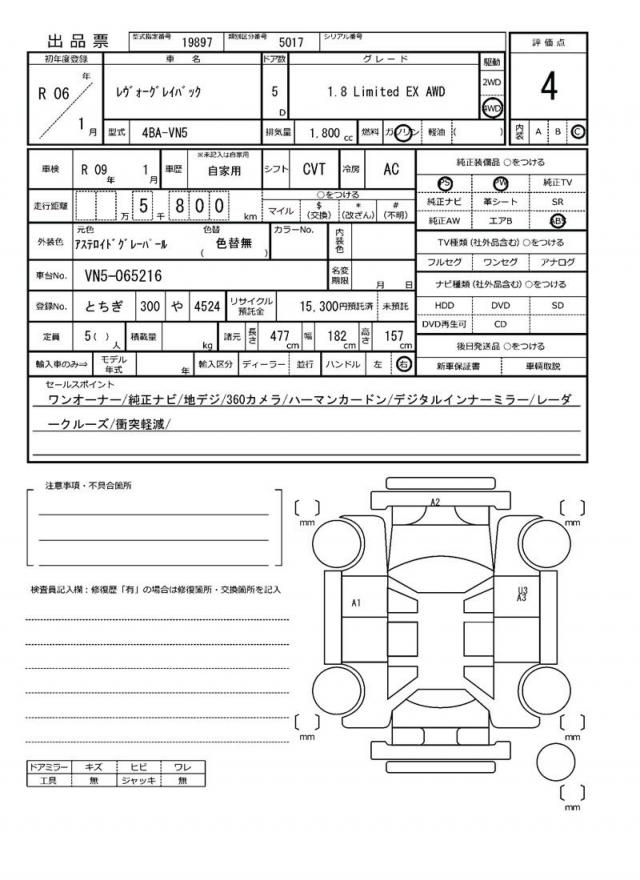 出品票 型式指定番号 19897 類別区分番号 5017 シリアル番号
初年度登録 車名 ドア数 グレード 駆動 評価点
R 06 年 1 月 レヴォーグレイバック 5 D 1.8 Limited EX AWD 2WD 4WD 4
型式 4BA-VN5 排気量 1.800 cc 燃料 ガソリン 軽油 ( ) 内装 A B C
車検 R 09 年 1 月 車歴 ※未記入は自家用 自家用 シフト CVT 冷房 AC 純正装備品 ○をつける
PS PW 純正TV
走行距離 万 5 千 8 0 0 km ○をつける
マイル $ (交換) * (改ざん) # (不明)
純正ナビ 革シート SR
純正AW エアB ABS
外装色 元色 アステロイドグレーパール 色替 ( 色替無 ) カラーNo. 内装色
TV種類 (社外品含む) ○をつける
フルセグ ワンセグ アナログ
車台No. VN5-065216 名変期限 月 日
ナビ種類 (社外品含む) ○をつける
登録No. とちぎ 300 や 4524 リサイクル預託金 15,300円預託済 未預託
HDD DVD SD
DVD再生可 CD
定員 5( ) 人 積載量 kg 諸元 長さ 477 cm 幅 182 cm 高さ 157 cm
後日発送品 ○をつける
輸入車のみ⇒ モデル年式 年 輸入区分 ディーラー 並行 ハンドル 左 右
新車保証書 車輌取説
セールスポイント
ワンオーナー/純正ナビ/地デジ/360カメラ/ハーマンカードン/デジタルインナーミラー/レーダ
ークルーズ/衝突軽減/
注意事項・不具合箇所
検査員記入欄：修復歴「有」の場合は修復箇所・交換箇所を記入
A2
mm mm
A1
U3
A3
mm mm
mm
ドアミラー キズ ヒビ ワレ
工具 無 ジャッキ 無